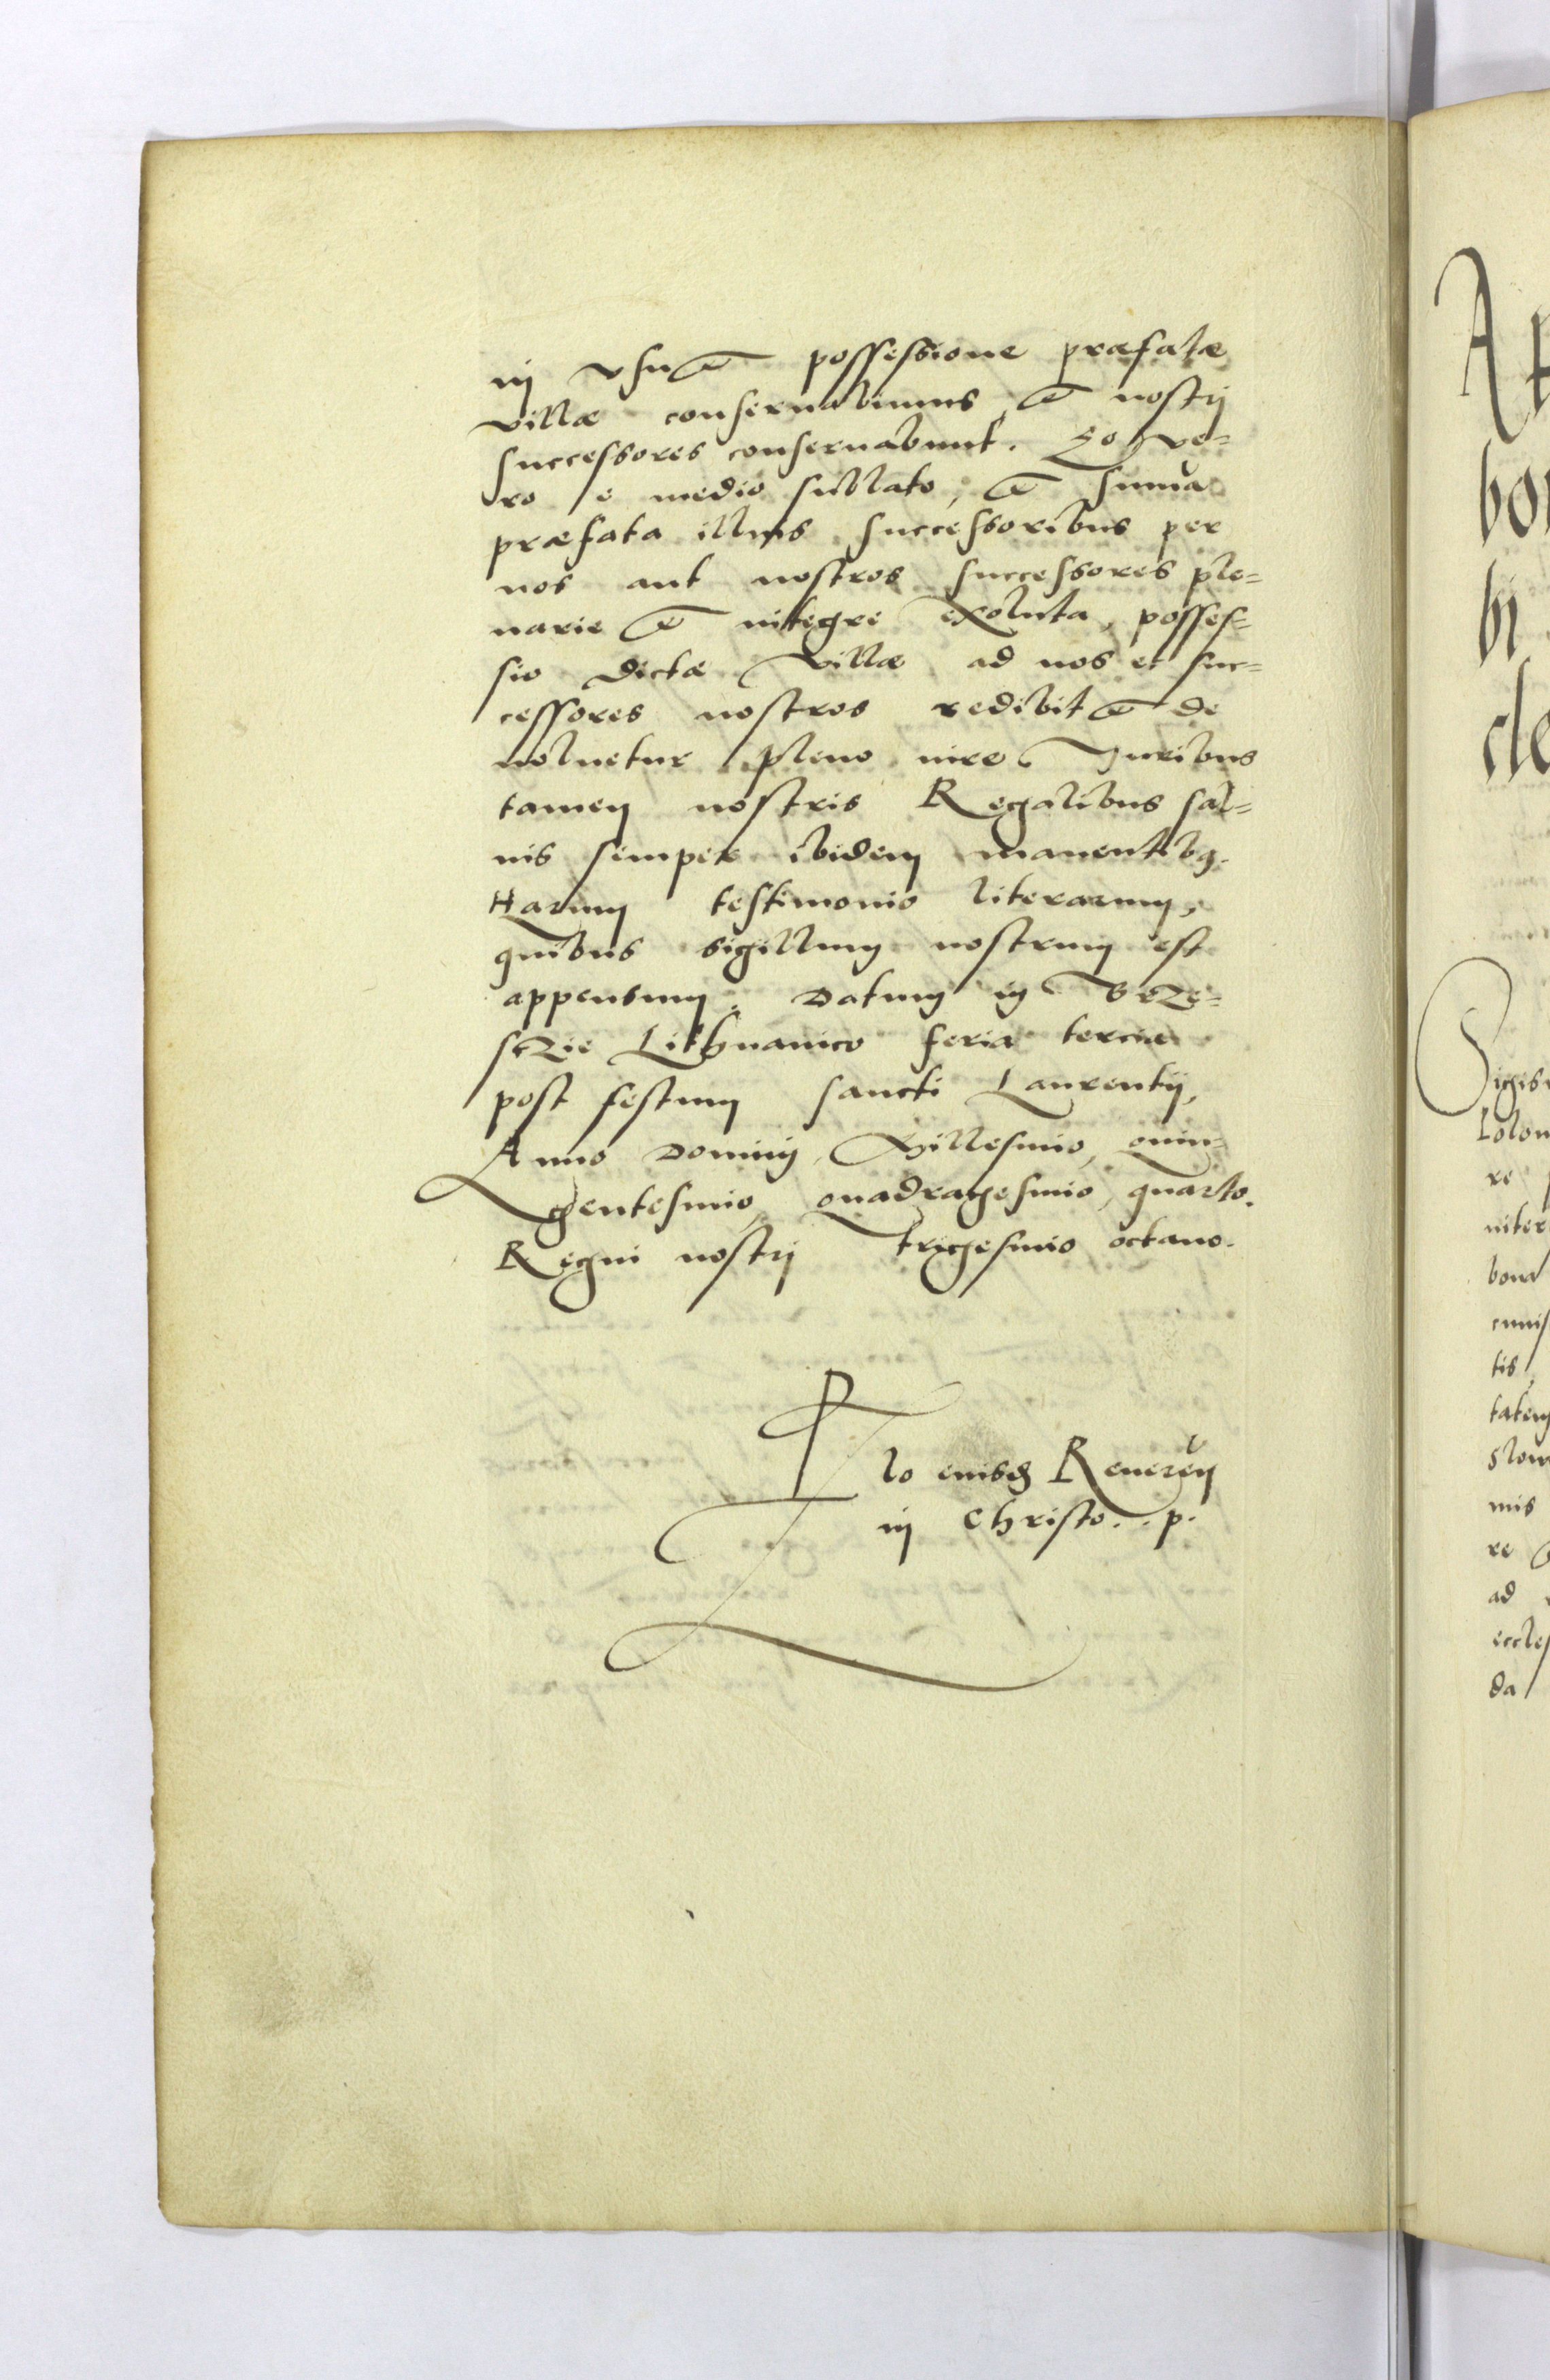 in vsu et possessione præfatæ
villæ conseruabimus, et nostri
successores conseruabunt. Eo ve=
ro e medio sublato, et summa
præfata illius successoribus per
nos aut nostros successores ple=
narie et integre exoluta, posses=
sio dictæ villæ ad nos et suc=
cessores nostros redibit et de
uoluetur pleno iure Iuribus
tamen nostris Regalibus sal=
uis semper ibidem manentibus.
Harum testimonio literarum,
quibus sigillum nostrum est
appensum. Datum in Brze=
sczie Lithuanico feria tercia
post festum sancti Laurentij,
Anno Domini, Millesimo, quin=
gentesimo, quadragesimo, quarto.
Regni nostri trigesimo octauo.
lo eiusdem Reueren
in Christo. . p.
A
bo
bi
cle
Sigis
Polon
re
niter
bona
cunis
tis
tatem
Slow
mis
re
ad
eccles
da